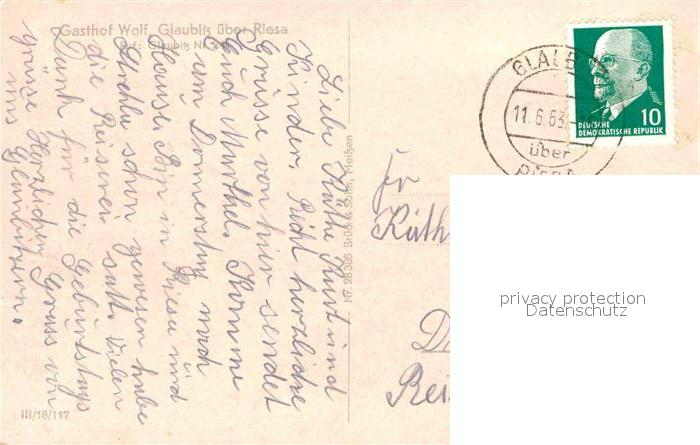 Gasthof Wolf, Glaubitz über Riesa
Liebe Käthe Kurt und
Kinder. Recht herzliche
Grüsse von hier sendet
Euch Murthel. Komme
am Donnerstag nach
Hause. Bin in Riesa und
schon gewesen habe
die Reiserei satt. Vielen
Dank für die Geburtstags
grüsse Herzlichen Gruss von
uns Glaubitzern.
III/18/117
Nr. 28385 Brück & Sohn, Meißen
GLAUBITZ
11.6.63.
über
RIESA
10
DEUTSCHE
DEMOKRATISCHE REPUBLIK
Käth
Rei
privacy protection
Datenschutz